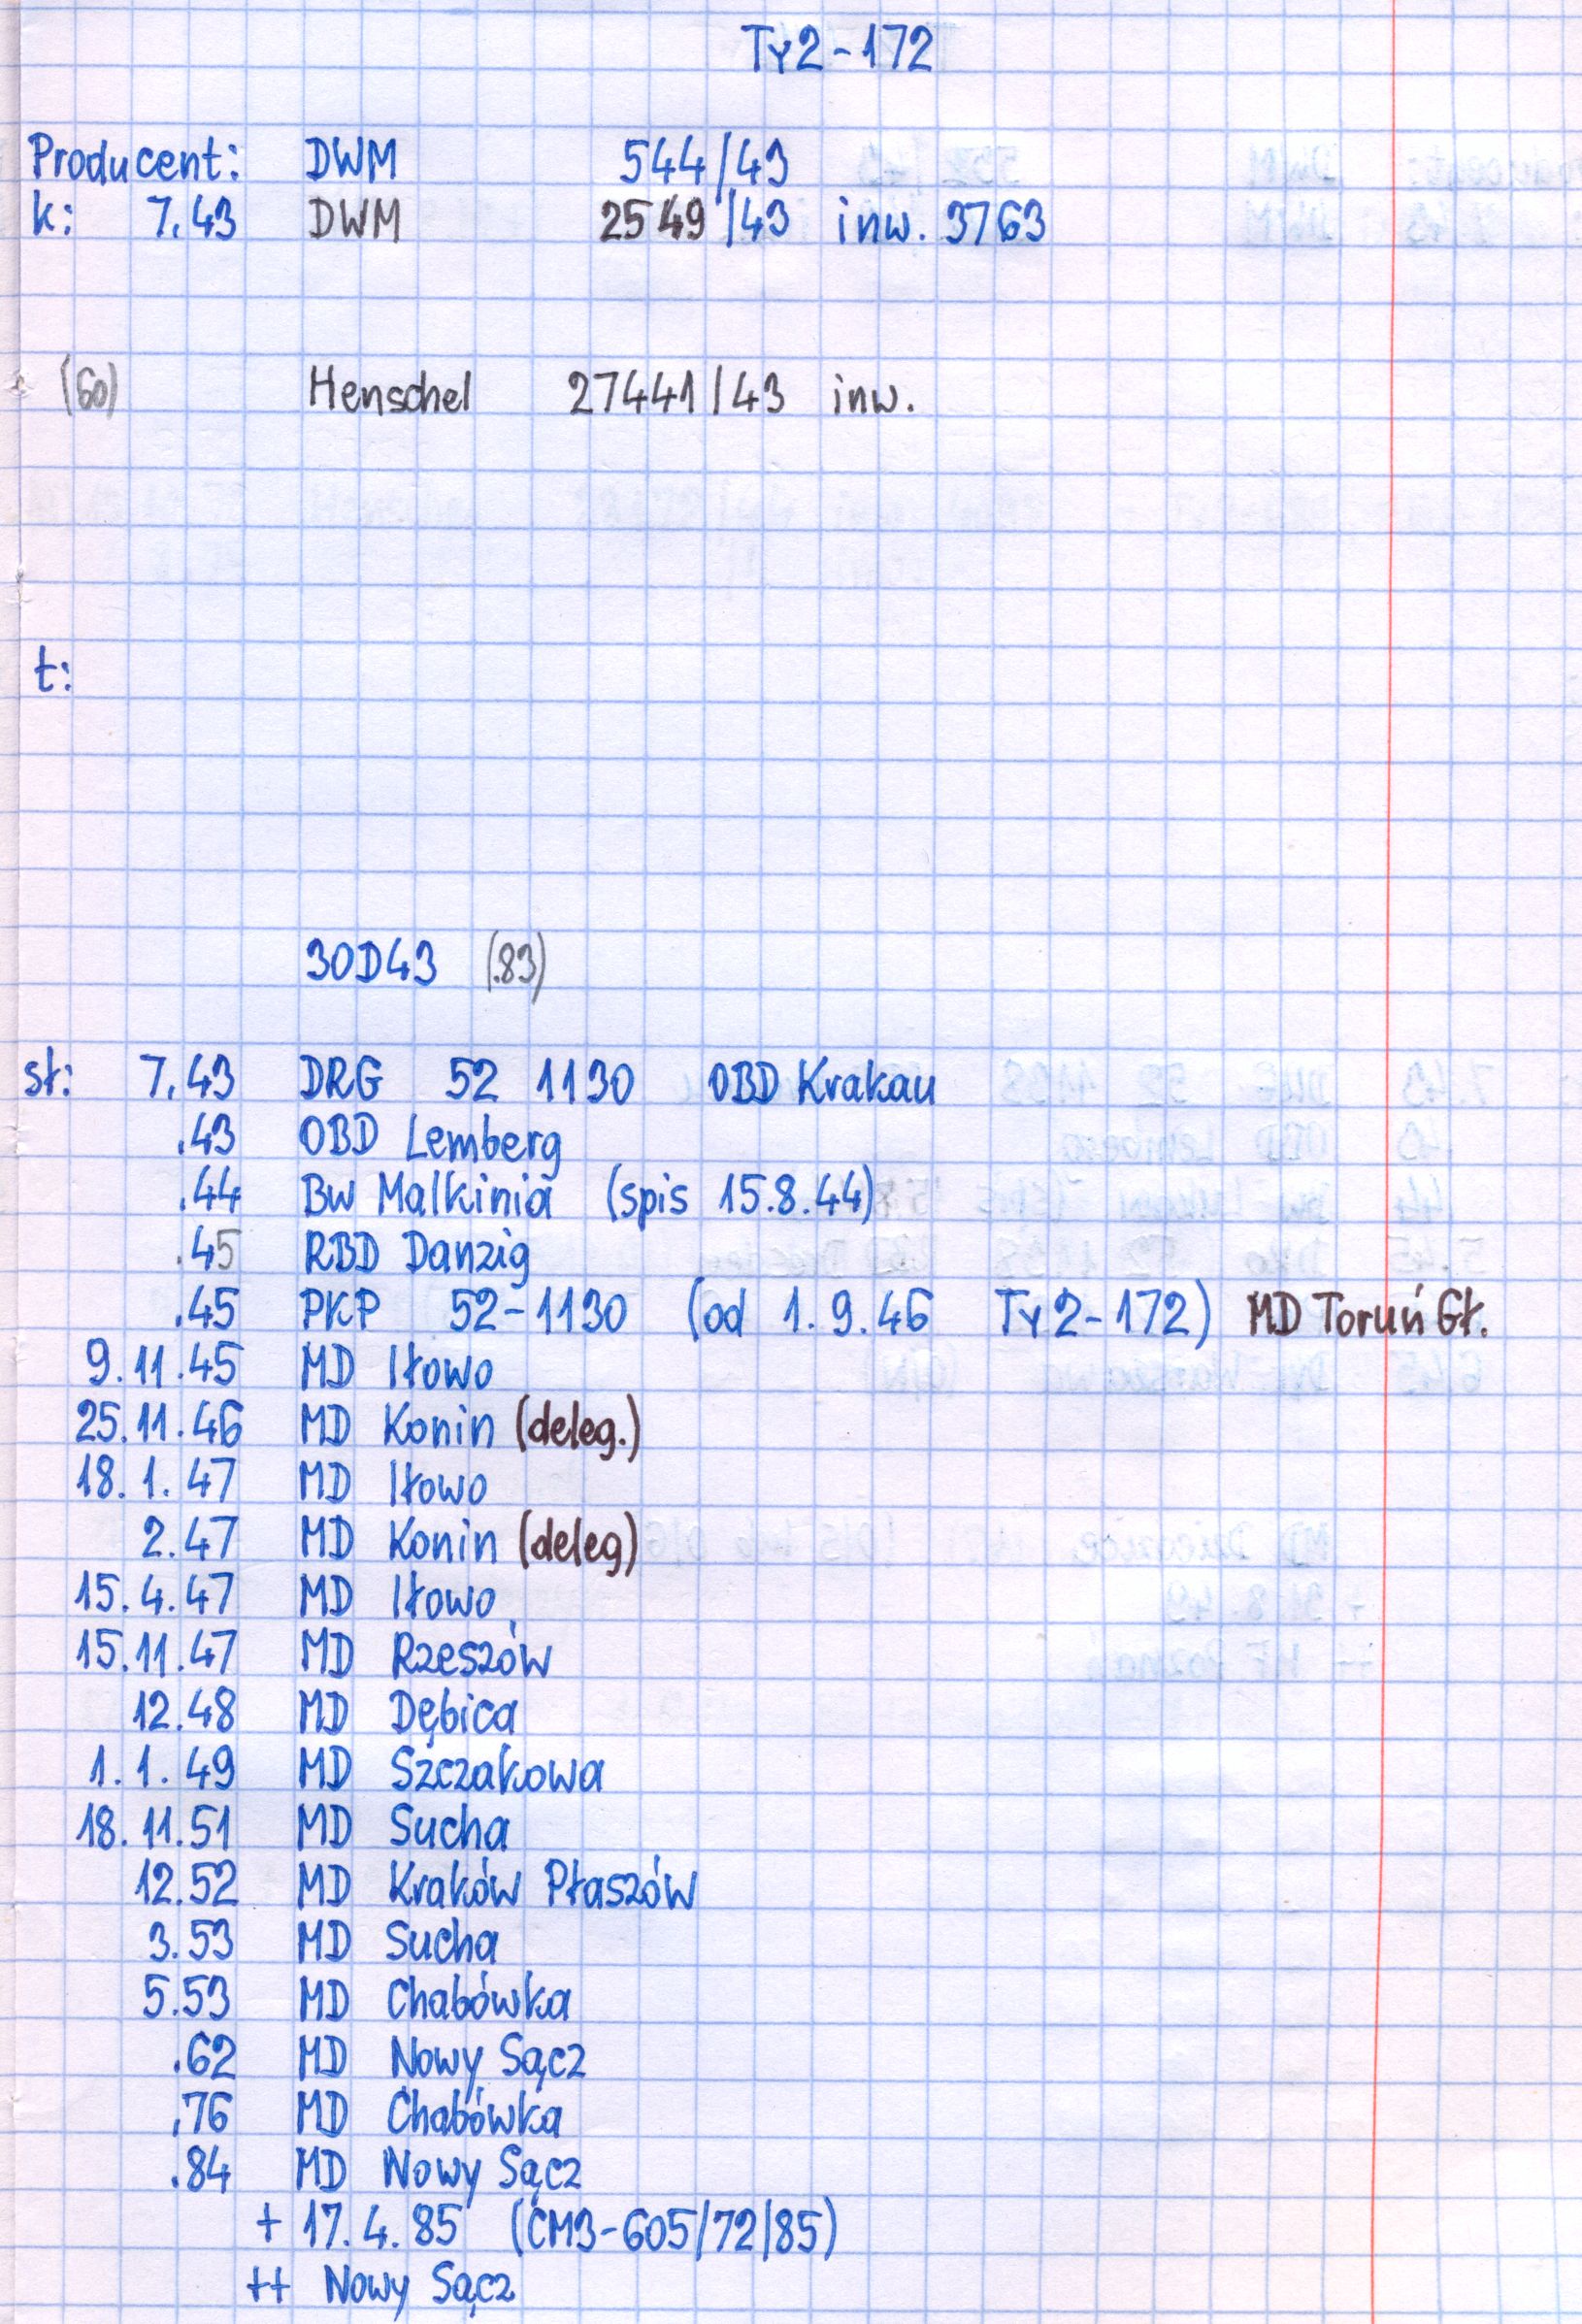 Ty2-172
Producent: DWM 544/43
k: 7.43 DWM 2549/43 inw. 3763
(60) Henschel 27441/43 inw.
t:
30D43 (.83)
st: 7.43 DRG 52 1130 OBD Krakau
.43 OBD Lemberg
.44 Bw Malkinia (spis 15.8.44)
.45 RBD Danzig
.45 PKP 52-1130 (od 1.9.46 Ty2-172) MD Toruń Gł.
9.11.45 MD Iłowo
25.11.46 MD Konin (deleg.)
18.1.47 MD Iłowo
2.47 MD Konin (deleg)
15.4.47 MD Iłowo
15.11.47 MD Rzeszów
12.48 MD Dębica
1.1.49 MD Szczakowa
18.11.51 MD Sucha
12.52 MD Kraków Płaszów
3.53 MD Sucha
5.53 MD Chabówka
.62 MD Nowy Sącz
.76 MD Chabówka
.84 MD Nowy Sącz
+ 17.4.85 (CM3-605/72/85)
++ Nowy Sącz